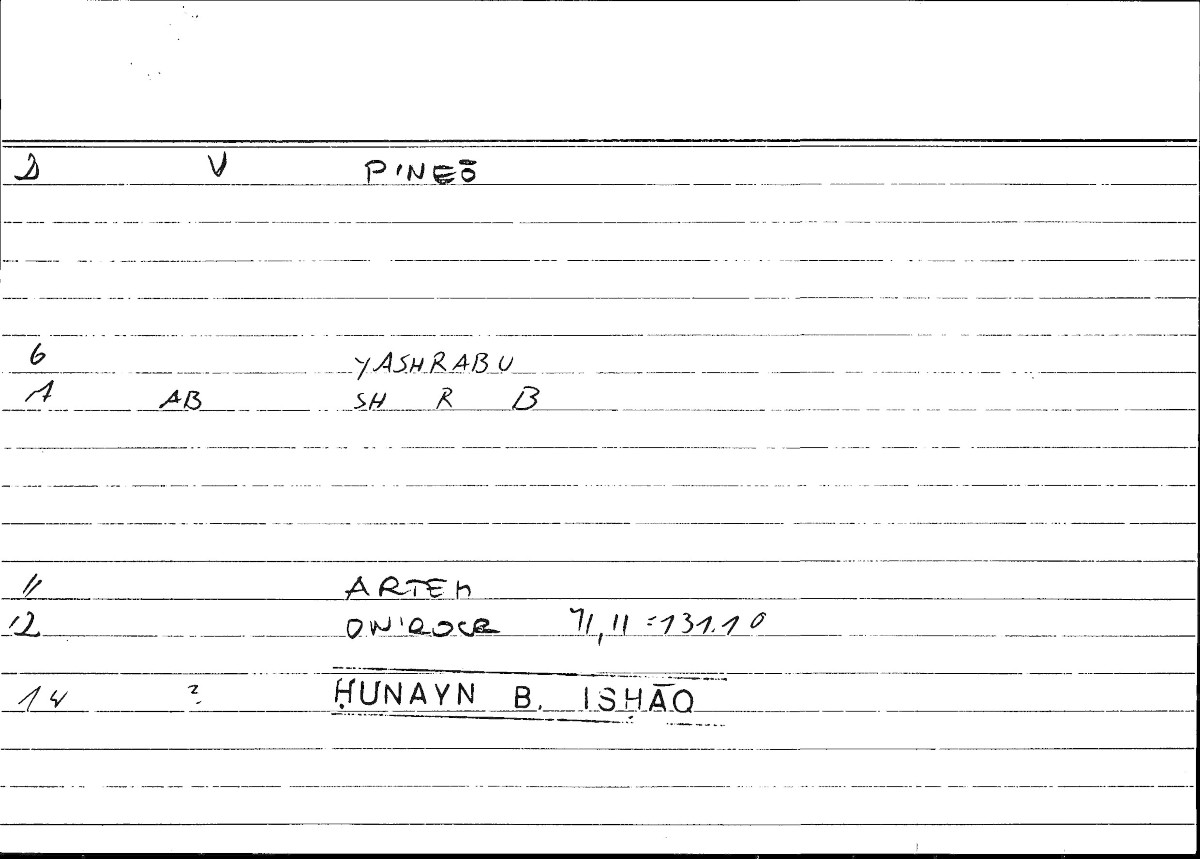 D V PINEŌ
6 YASHRABU
A AB SH R B
11 ARTEM
12 ONIROCR 71,11 = 131.10
14 ? ḤUNAYN B. ISḤĀQ